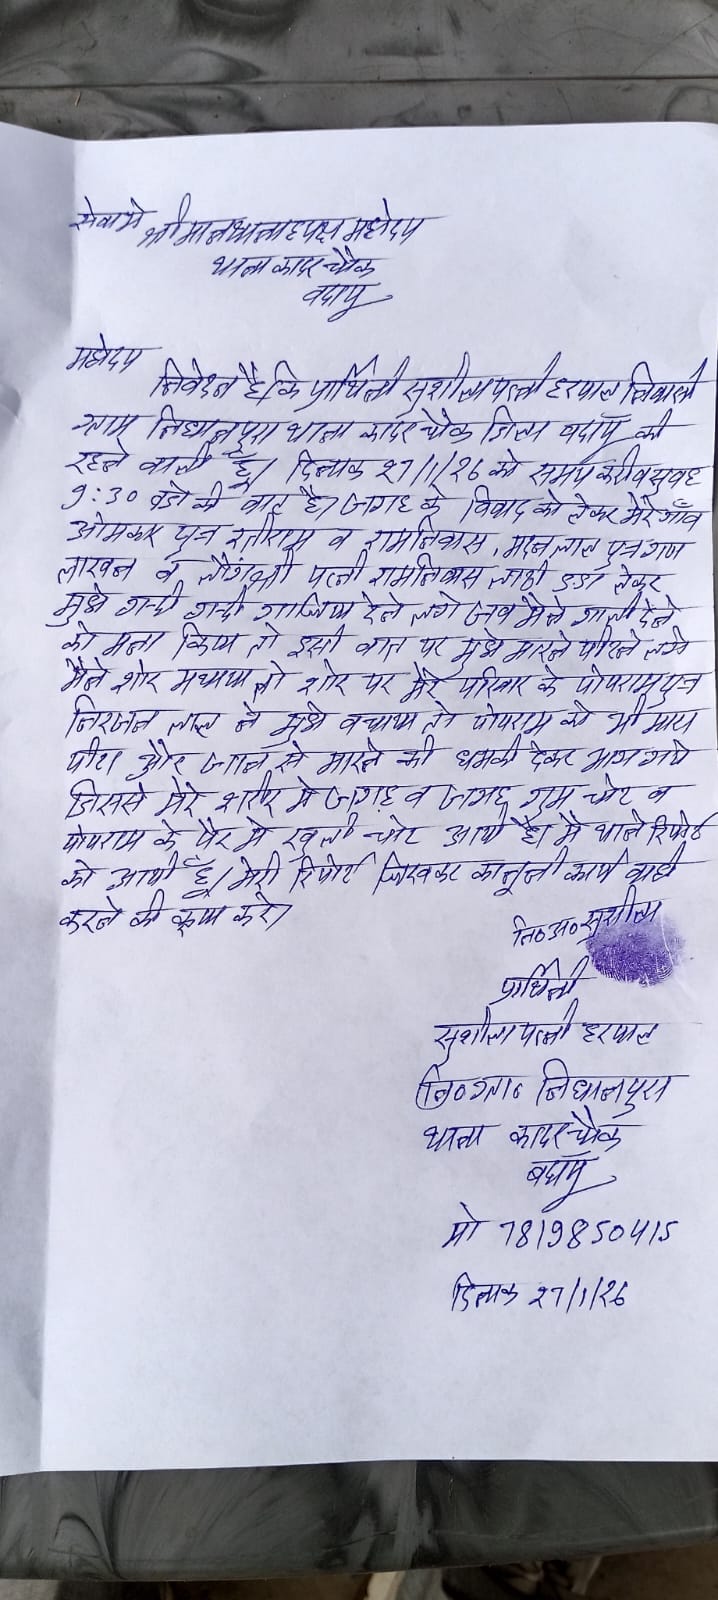 सेवामे
श्रीमान थानाध्यक्ष महोदय
थाना कादर चौक
बदायूं
महोदय
निवेदन है कि प्रार्थिनी सुशीला पत्नी हरपाल निवासी
ग्राम निधानपुरा थाना कादर चौक जिला बदायूँ की
रहने वाली हूं। दिनांक 27/1/26 को समय करीव सुवह
9:30 वजे की वात है। जगह के विवाद को लेकर मेरे गाँव
ओमकार पुत्र रतीराम व रामनिवास, मदन लाल पुत्रगण
लाखन व लौंगश्री पत्नी रामनिवास लाठी डंडा लेकर
मुझे गन्दी गन्दी गालिया देने लगे जब मैने गाली देने
को मना किया तो इसी वात पर मुझे मारने पीटने लगे
मैने शोर मचाया तो शोर पर मेरे परिवार के पोपराम पुत्र
निरंजन लाल ने मुझे वचाया तो पोपराम को भी मारा
पीटा और जान से मारने की धमकी देकर भाग गये
जिससे मेरे शरीर मे जगह व जगह गुम चोट व
पोपराम के पैर मे खुली चोट आयी है। मै थाने रिपोर्ट
को आयी हूँ। मेरी रिपोर्ट लिखकर कानूनी कार्य वाही
करने की कृपा करे।
नि० अ० सुशीला
प्रार्थिनी
सुशीला पत्नी हरपाल
नि० ग्रा० निधानपुरा
थाना कादर चौक
बदायूं
मो 7819850415
दिनाक 27/1/26